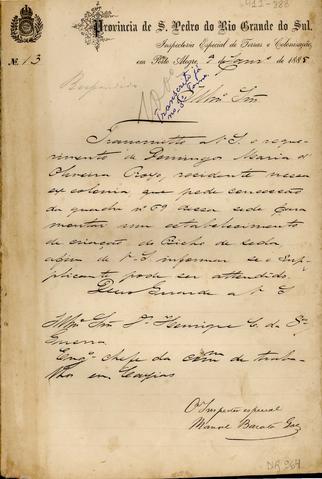 Provincia de S. Pedro do Rio Grande do Sul.
Inspectoria Especial de Terras e Colonisação,
em Porto Alegre, de de 1885
N.º 13
Respondido
Illmo Snr
Transmitto a V. S. o requerimento
de Domingos Maria d'
Oliveira, residente nessa
ex colonia, que pede concessão
da quadra nº 69 dessa sede para
montar um estabelecimento
de criação do Bicho de seda
afim de V. S. informar se o supplicante
pode ser attendido.
Deus Guarde a V. S
Illmo Snr Dr Henrique C. da
Guerra
Engº Chefe da Com de trabalhos
em Caxias
O Inspector especial
Manoel Barata Góes
DR 964